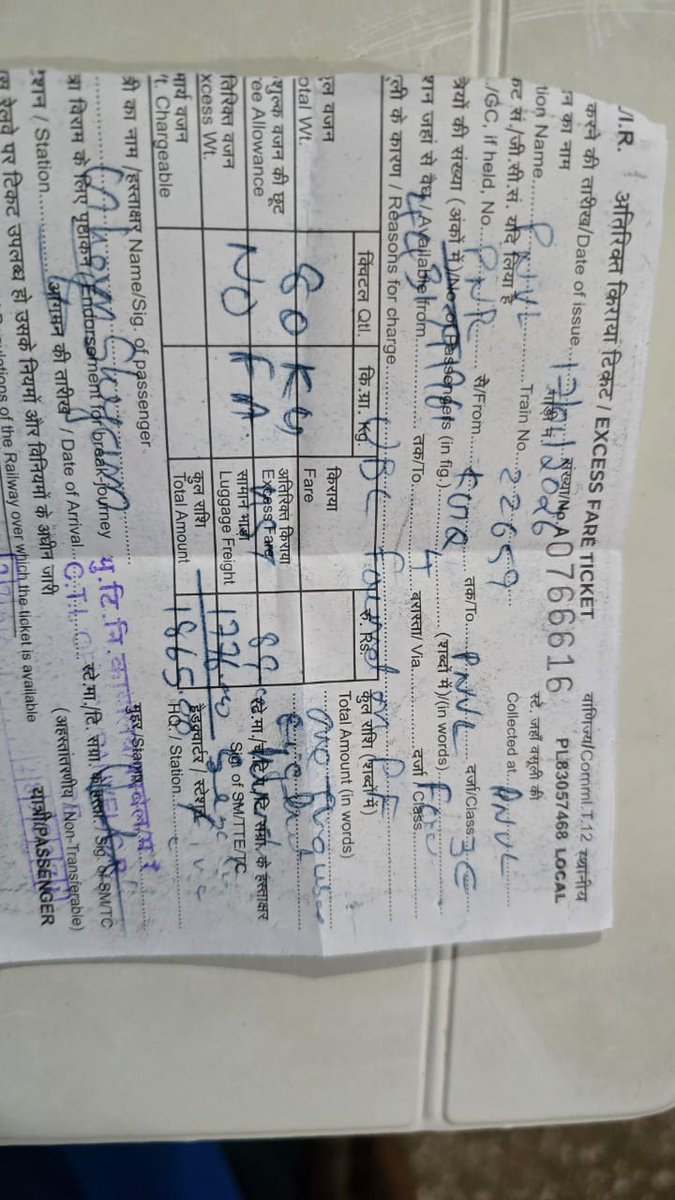 ./I.R. अतिरिक्त किराया टिकट / EXCESS FARE TICKET वाणिज्य/Comml T.12 स्थानीय
संख्या/No. A 0766616 PL83057468 LOCAL
करने की तारीख/Date of issue 12/04/2026 स्टे. जहाँ वसूली की
न का नाम गाड़ी नं.
tion Name PNVL Train No. 22659 Collected at PNVL
कट सं./जी.सी.सं. यदि लिया है
./GC, if held, No. PNR से/From तक/To PNVL दर्जा/Class 3E
त्रियों की संख्या (अंकों में)/No of Passengers (in fig.) 4 (शब्दों में)/(in words) Four
शन जहां से वैध/Available from तक/To वरास्ता/Via दर्जा/Class
ूली के कारण / Reasons for charge UBL Found on PF
क्विंटल Qtl. कि.ग्रा. Kg. किराया रु. Rs. कुल राशि (शब्दों में)
ुल वजन 80 KG Fare Total Amount (in words)
otal Wt. one thousand
शुल्क वजन की छूट NO FA अतिरिक्त किराया 89
ree Allowance Excess Fare
तिरिक्त वजन सामान भाड़ा 1776
xcess Wt. Luggage Freight Sig. of SM/TTE/TC
मार्य वजन कुल राशि 1865 हैडक्वार्टर / स्टेशन
t. Chargeable Total Amount HQ. / Station
त्री का नाम /हस्ताक्षर Name/Sig. of passenger मुहर/Stamp
त्रा विराम के लिए पृष्ठांकन / Endorsement for break-journey
आगमन की तारीख / Date of Arrival स्टे.मा./टि. संग्रा. के हस्ताक्षर / Sig. of SM/TC
टेशन / Station (अहस्तांतरणीय /Non-Transferable)
स रेलवे पर टिकट उपलब्ध हो उसके नियमों और विनियमों के अधीन जारी यात्री/PASSENGER
ulations of the Railway over which the ticket is available